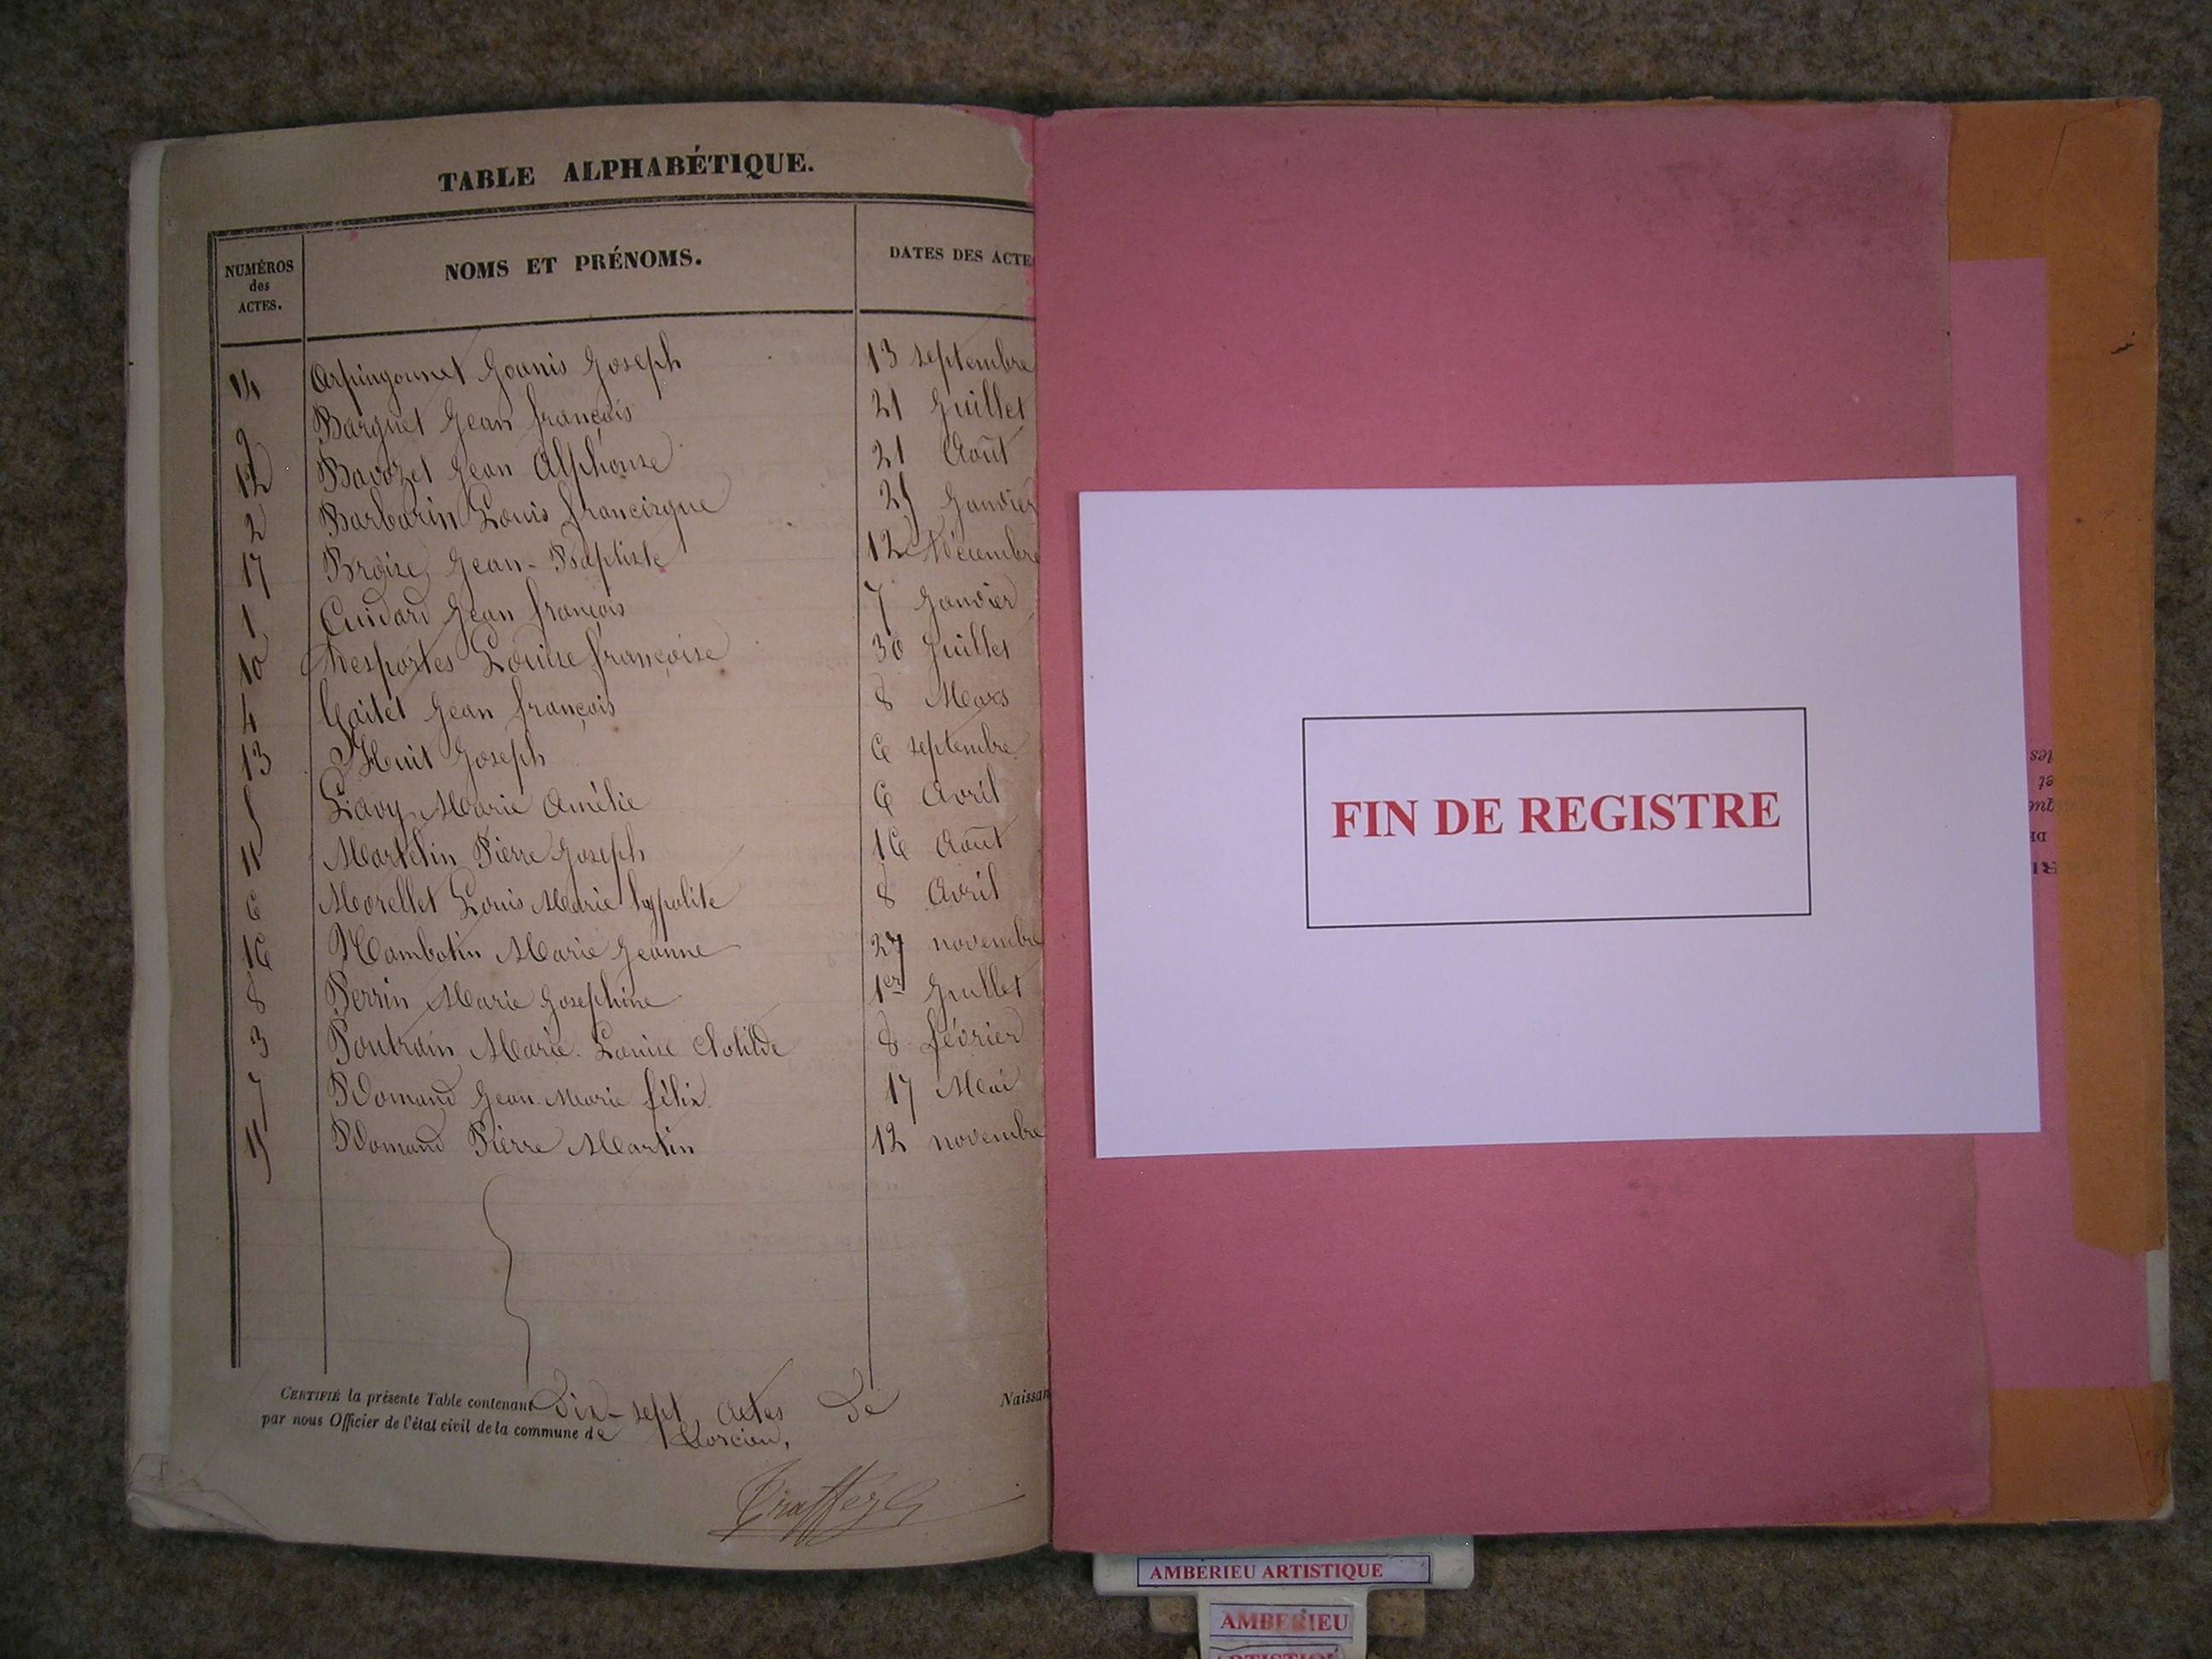 TABLE ALPHABÉTIQUE.
NUMÉROS des ACTES. NOMS ET PRÉNOMS. DATES DES ACTE
14 Arpingounet Jounis Joseph 13 septembre
9 Barquet Jean françois 21 Juillet
12 Bavozet Jean Alphonse 21 Août
2 Barbarin Louis francisque 25 Janvier
17 Broize Jean-Baptiste 12 Décembre
1 Cuidard Jean françois 7 Janvier
10 Desportes Louise françoise 30 Juillet
4 Goitet Jean françois 8 Mars
13 Huit Joseph 6 septembre
5 Lavy Marie Amélie 6 Avril
11 Martelin Pierre Joseph 16 Août
6 Morellet Louis Marie hyppolite 8 Avril
16 Nambotin Marie Jeanne 27 novembre
8 Perrin Marie Josephine 1er Juillet
3 Poutrain Marie Louise Clotilde 8 février
7 Romand Jean Marie félix 17 Mai
15 Romand Pierre Martin 12 novembre
CERTIFIÉ la présente Table contenant Dix-sept actes de Naissan
par nous Officier de l'état civil de la commune de
FIN DE REGISTRE
AMBERIEU ARTISTIQUE
AMBERIEU
ARTISTIQU